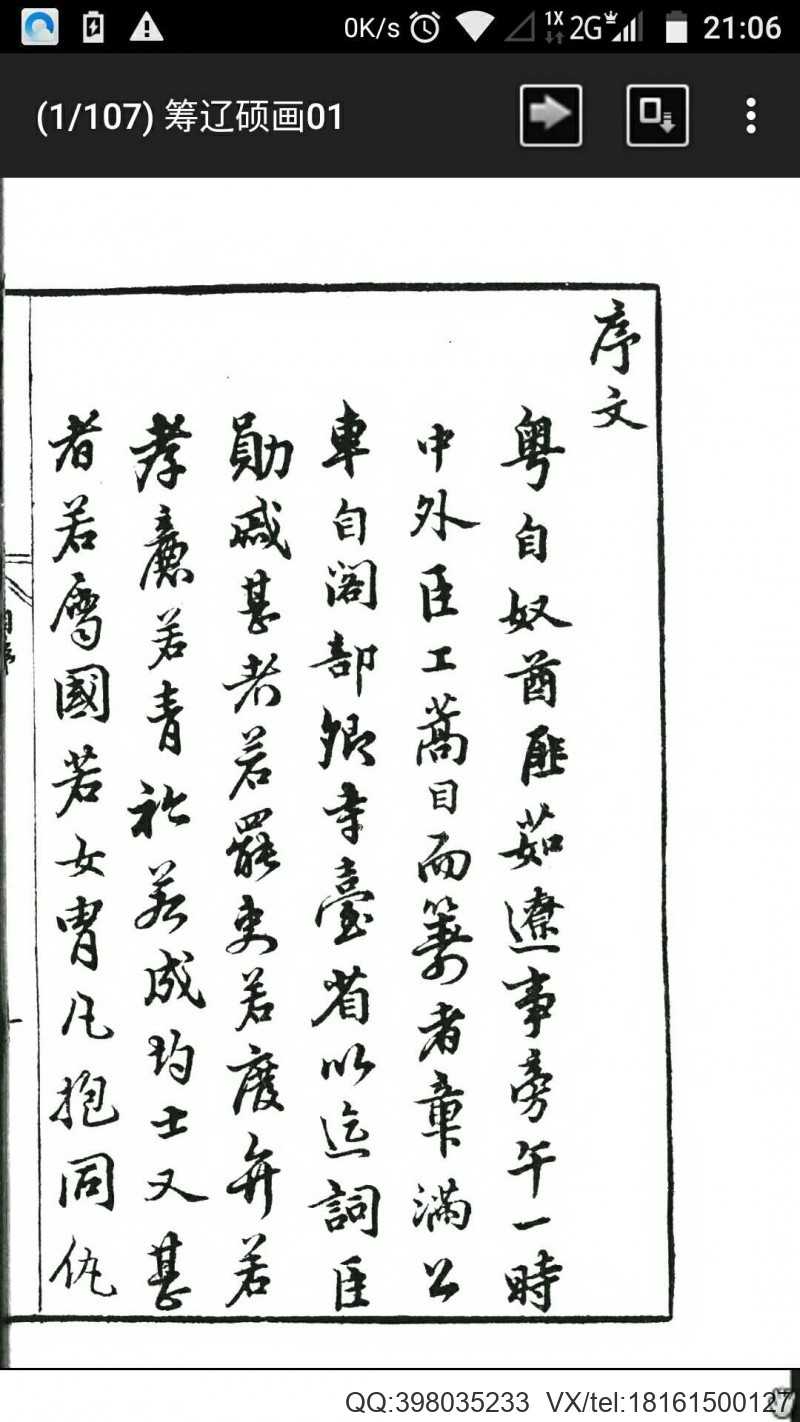 0K/s 1X 2G 21:06
(1/107) 筹辽硕画01
序文
粤自奴酋匪茹遼事旁午一時
中外臣工蒿目而籌者章滿公
車自閣部卿寺臺省以迄詞臣
勛戚甚者若罷吏若廢弁若
孝廉若青衿若成均士又甚
者若寫國若女胄凡抱同仇
QQ:398035233 VX/tel:18161500127